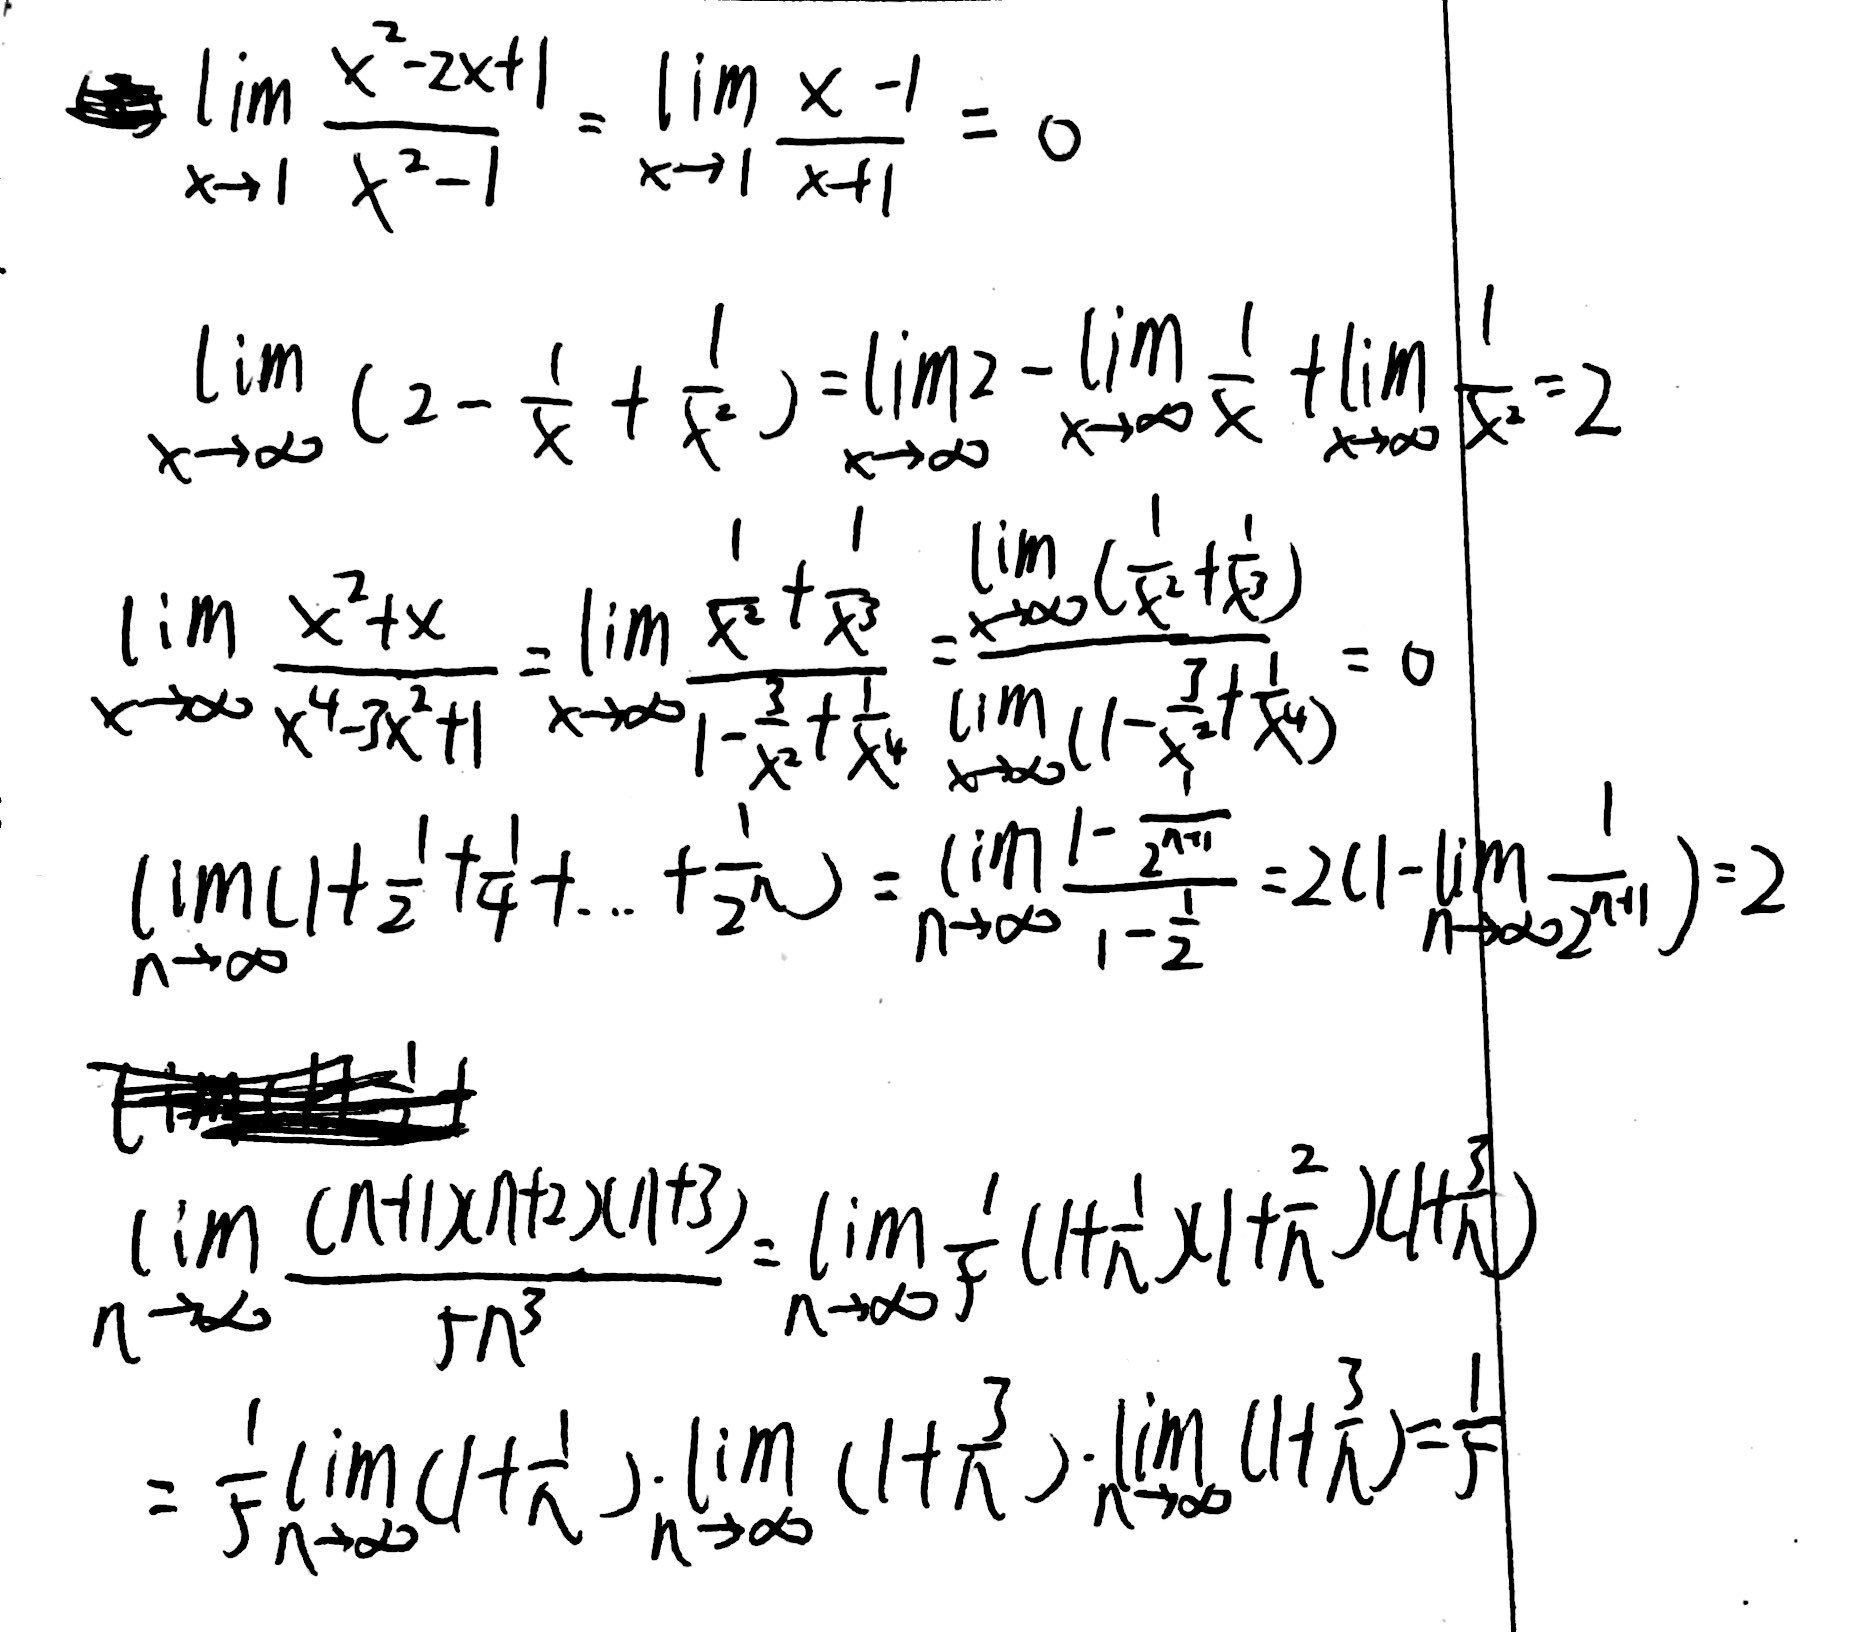 lim_{x→1} \frac{x^2-2x+1}{x^2-1} = lim_{x→1} \frac{x-1}{x+1} = 0
lim_{x→∞} (2 - \frac{1}{x} + \frac{1}{x^2}) = lim_{x→∞} 2 - lim_{x→∞} \frac{1}{x} + lim_{x→∞} \frac{1}{x^2} = 2
lim_{x→∞} \frac{x^2+x}{x^4-3x^2+1} = lim_{x→∞} \frac{\frac{1}{x^2}+\frac{1}{x^3}}{1-\frac{3}{x^2}+\frac{1}{x^4}} = \frac{lim_{x→∞} (\frac{1}{x^2}+\frac{1}{x^3})}{lim_{x→∞} (1-\frac{3}{x^2}+\frac{1}{x^4})} = 0
lim_{n→∞} (1+\frac{1}{2}+\frac{1}{4}+...+\frac{1}{2^n}) = lim_{n→∞} \frac{1-\frac{1}{2^{n+1}}}{1-\frac{1}{2}} = 2(1-lim_{n→∞} \frac{1}{2^{n+1}}) = 2
lim_{n→∞} \frac{(n+1)(n+2)(n+3)}{5n^3} = lim_{n→∞} \frac{1}{5} (1+\frac{1}{n})(1+\frac{2}{n})(1+\frac{3}{n})
= \frac{1}{5} lim_{n→∞} (1+\frac{1}{n}) · lim_{n→∞} (1+\frac{3}{n}) · lim_{n→∞} (1+\frac{3}{n}) = \frac{1}{5}